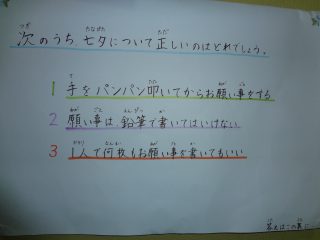 次のうち、七夕について正しいのはどれでしょう。
1 手をパンパン叩いてからお願い事をする
2 願い事は、鉛筆で書いてはいけない
3 1人で何枚もお願い事を書いてもいい
答えはこの裏